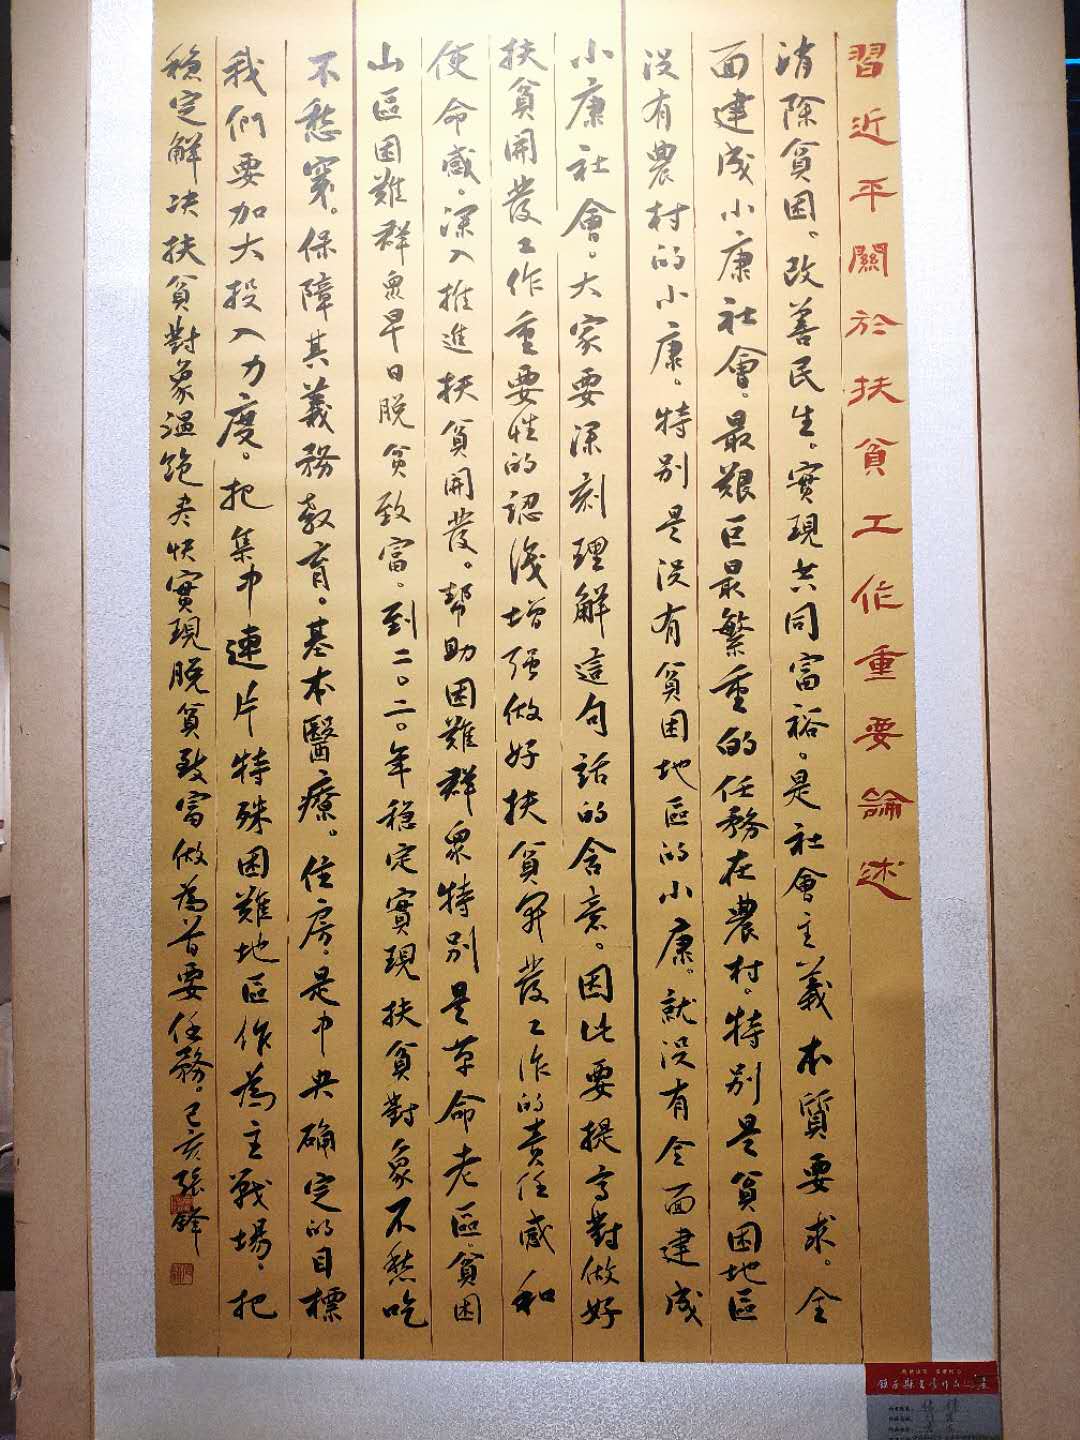 習近平關於扶貧工作重要論述
消除貧困。改善民生。實現共同富裕。是社會主義本質要求。全
面建成小康社會。最艱巨最繁重的任務在農村。特别是貧困地區
没有農村的小康。特别是没有貧困地區的小康。就没有全面建成
小康社會。大家要深刻理解這句話的含意。因此要提高對做好
扶貧開發工作重要性的認識增强做好扶貧開發工作的責任感和
使命感。深入推進扶貧開發。幫助困難群衆特别是革命老區。貧困
山區困難群衆早日脱貧致富。到二〇二〇年穩定實現扶貧對象不愁吃
不愁穿。保障其義務教育。基本醫療。住房。是中央确定的目標
我們要加大投入力度。把集中連片特殊困難地區作為主戰場。把
穩定解决扶貧對象温飽盡快實現脱貧致富做為首要任務。己亥張鋒